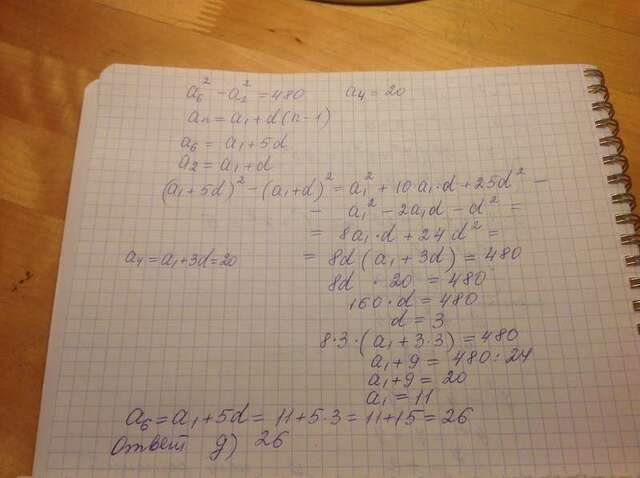 a₆² - a₂² = 480 a₄ = 20
aₙ = a₁ + d(n-1)
a₆ = a₁ + 5d
a₂ = a₁ + d
(a₁ + 5d)² - (a₁ + d)² = a₁² + 10·a₁·d + 25d² -
- a₁² - 2a₁d - d² =
= 8a₁·d + 24d² =
a₄ = a₁ + 3d = 20 = 8d(a₁ + 3d) = 480
8d · 20 = 480
160·d = 480
d = 3
8·3·(a₁ + 3·3) = 480
a₁ + 9 = 480 : 24
a₁ + 9 = 20
a₁ = 11
a₆ = a₁ + 5d = 11 + 5·3 = 11 + 15 = 26
Ответ д) 26